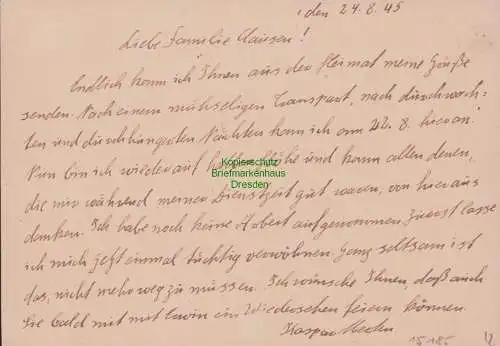 , den 24.8.45
Liebe Familie Clausen!
Endlich kann ich Ihnen aus der Heimat meine Grüße
senden. Nach einem mühseligen Transport, nach durchwach-
ten und durchhungerten Nächten kam ich am 22. 8. hier an.
Nun bin ich wieder auf Höhe und kann allen denen,
die mir während meiner Dienstzeit gut waren, von hier aus
danken. Ich habe noch keine Arbeit aufgenommen. Zuerst lasse
ich mich jetzt einmal tüchtig verwöhnen. Ganz seltsam ist
das, nicht mehr weg zu müssen. Ich wünsche Ihnen, daß auch
Sie bald mit Erwin ein Wiedersehen feiern können.
Kaspar
Kopierschutz
Briefmarkenhaus
Dresden
15185